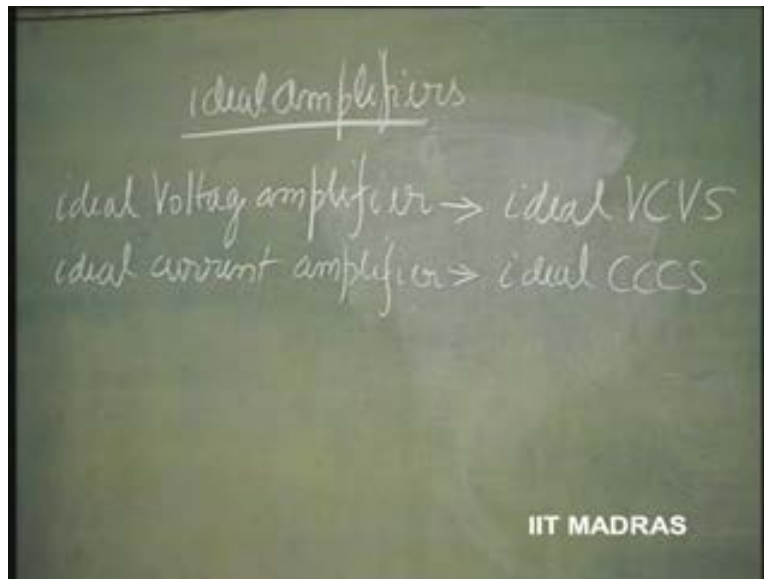 ideal amplifiers
ideal Voltag amplifier → ideal VCVS
ideal current amplifier → ideal CCCS
IIT MADRAS